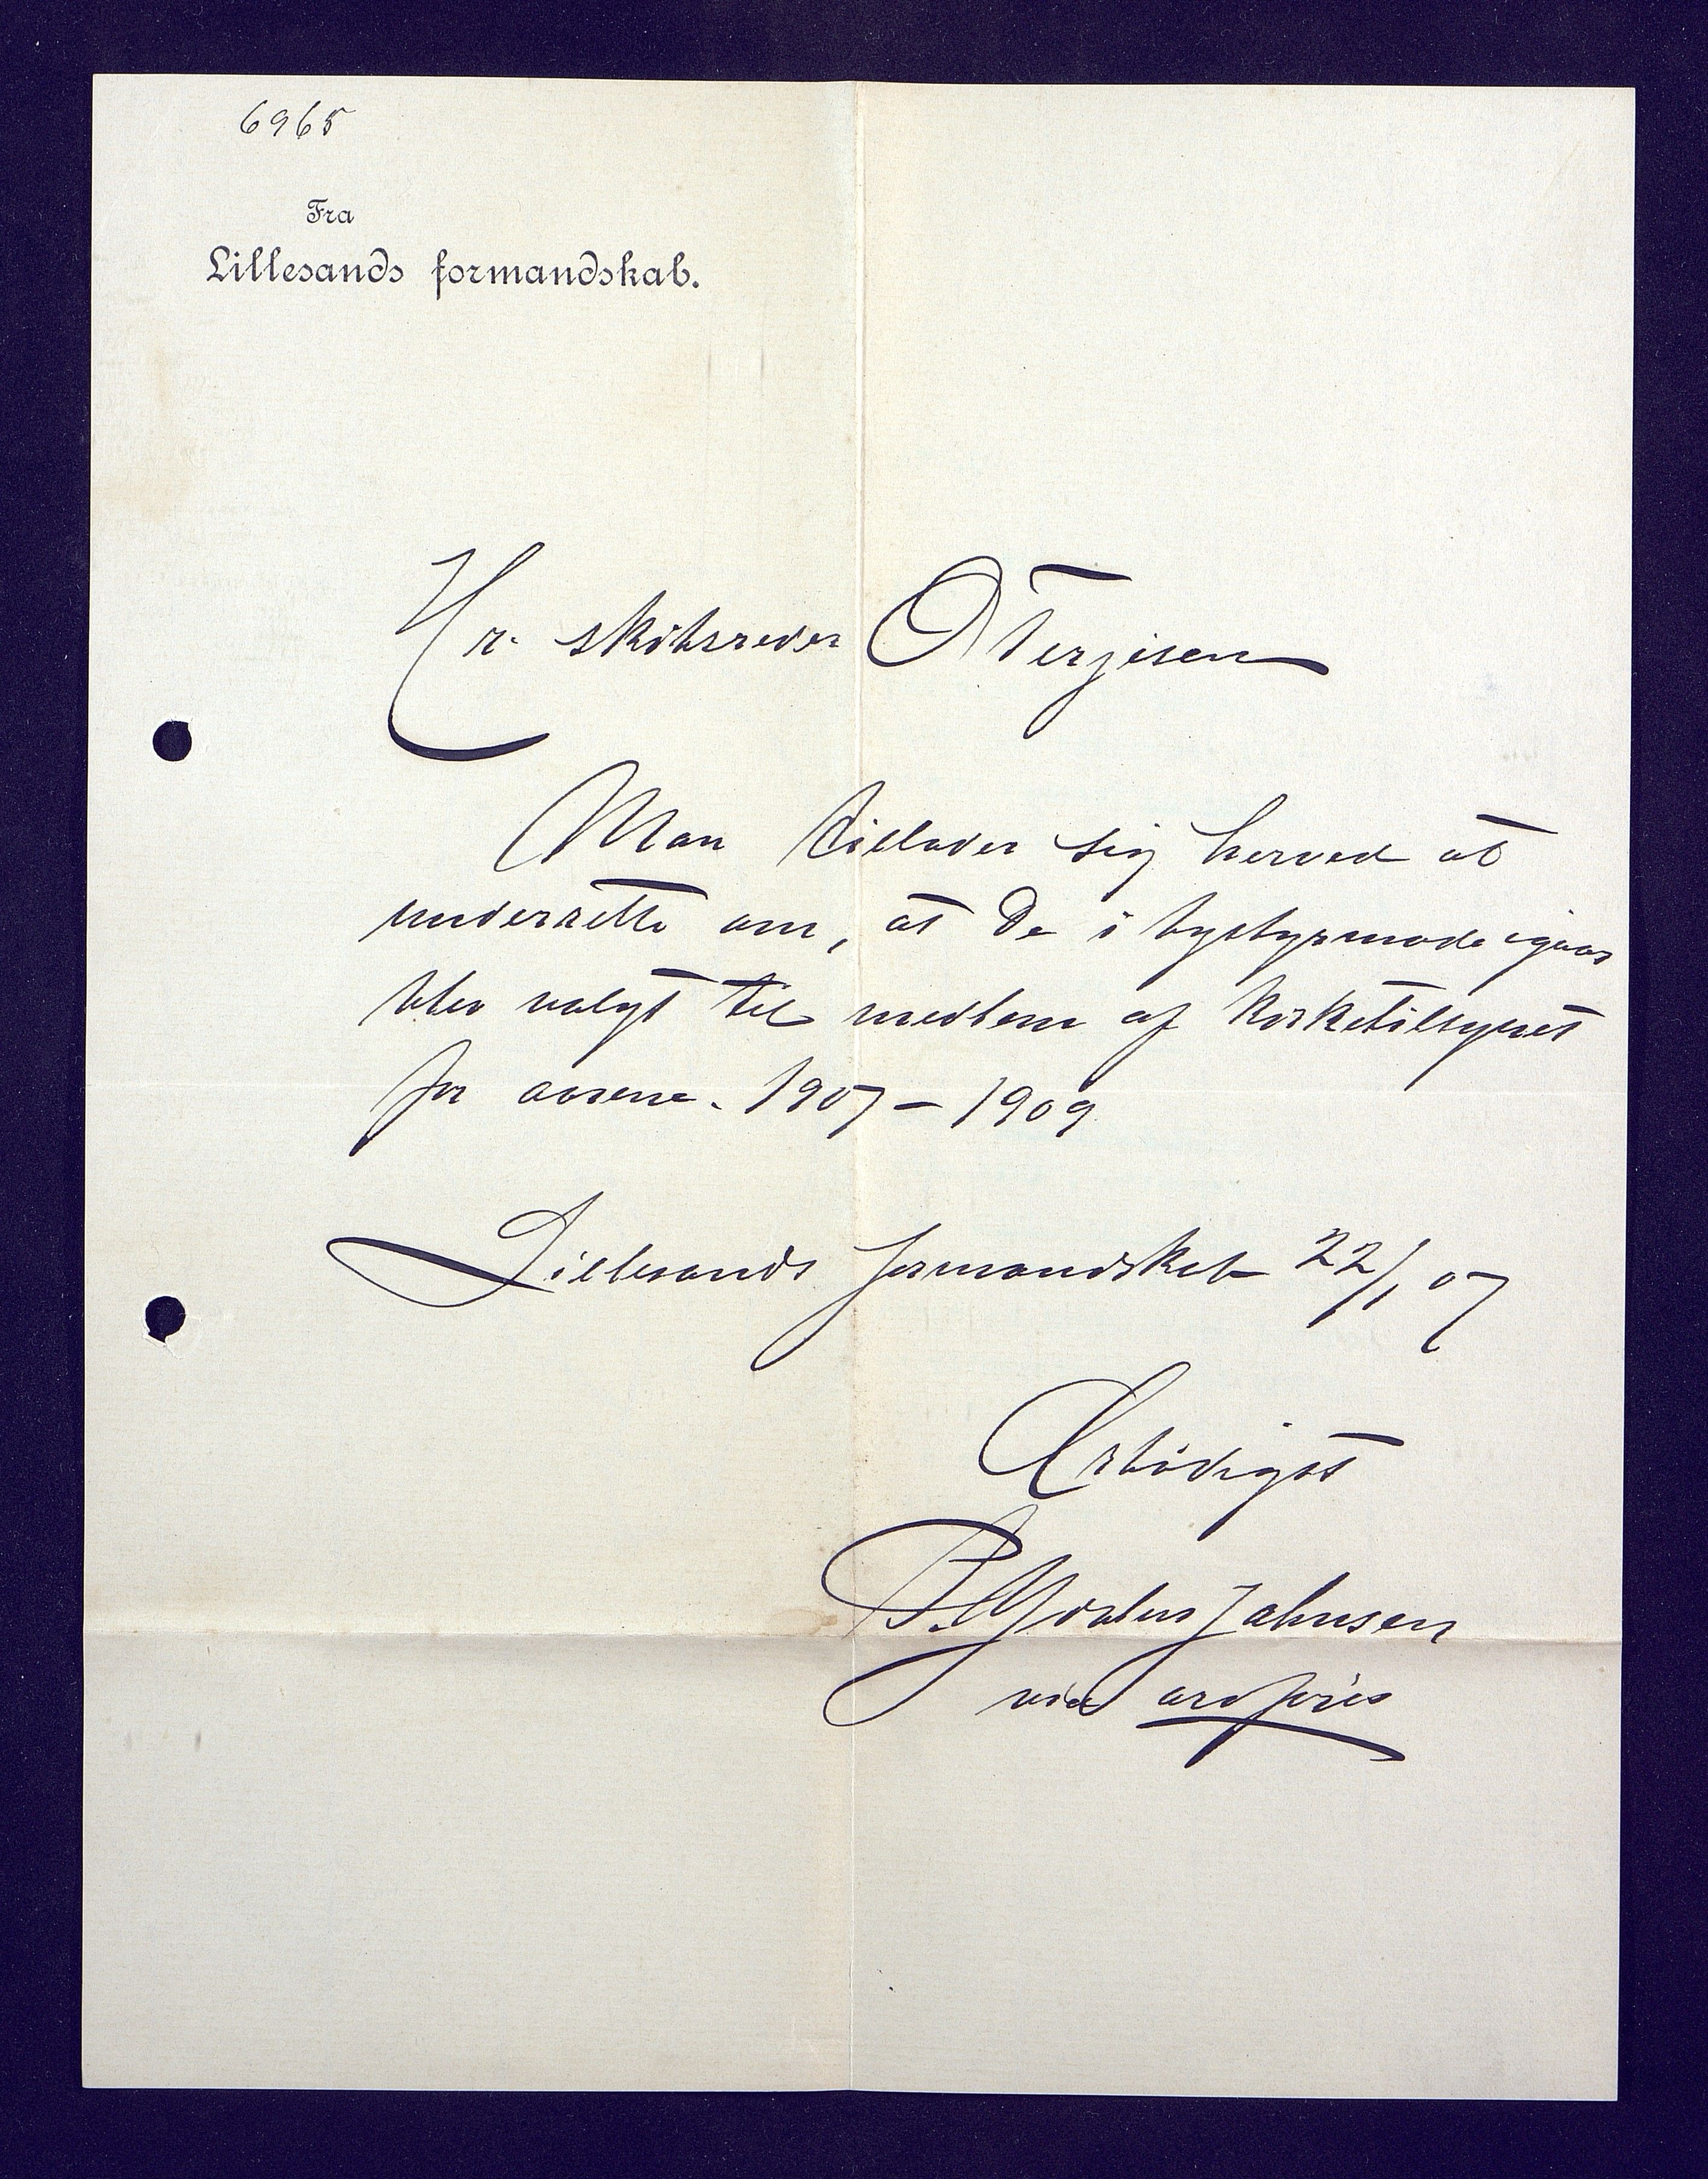 6965
Fra
Lillesands formandskab.
Hr. skibsreder O Terjesen
Man tillader sig herved at
underrette om, at De i bystyrmøde igaar
blev valgt til medlem af Kirketilsynet
for aarene 1907 – 1909
Lillesands formandskab 22/1 07
Ærbødigst
Jahnsen
viceordfører